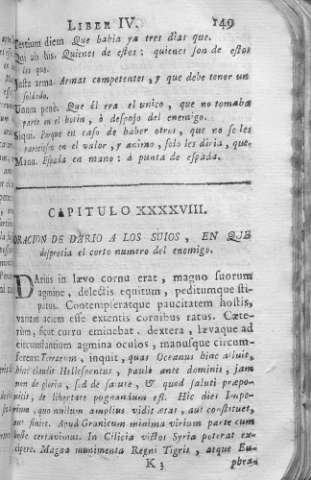 LIBER IV. 149
Tertium diem Que habia ya tres dias que.
Qui ab his. Quienes de estos: quienes son de estos
los que.
Justa arma. Armas competentes, y que debe tener un
soldado.
Unum pene. Que él era el unico, que no tomaba
parte en el botin, ò despojo del enemigo.
Siqui. Porque en caso de haber otros, que no se les
pareciesen en el valor, y animo, solo les diria, que.
Manu. Espada en mano: à punta de espada.
CAPITULO XXXXVIII.
ORACION DE DARIO A LOS SUIOS, EN QUE
desprecia el corto numero del enemigo.
DArius in lævo cornu erat, magno suorum
agmine, delectis equitum, peditumque sti-
patus. Contempseratque paucitatem hostis,
vanam aciem esse extentis cornibus ratus. Cæte-
rum, sicut curru eminebat. dextera, lævaque ad
circumstantium agmina oculos, manusque circum-
ferens: Terrarum, inquit, quas Oceanus hinc alluit,
hinc claudit Hellespontus, paulò ante dominis, jam
non de gloria, sed de salute, & quod saluti præpo-
nitis, de libertate pugnandum est. Hic dies Impe-
rium, quo nullum amplius vidit ætas, aut constituet,
aut finiet. Apud Granicum minima virium parte cum
hoste certavimus. In Cilicia victos Syria poterat ex-
cipere. Magna munimenta Regni Tigris, atque Eu-
K 3 phra-